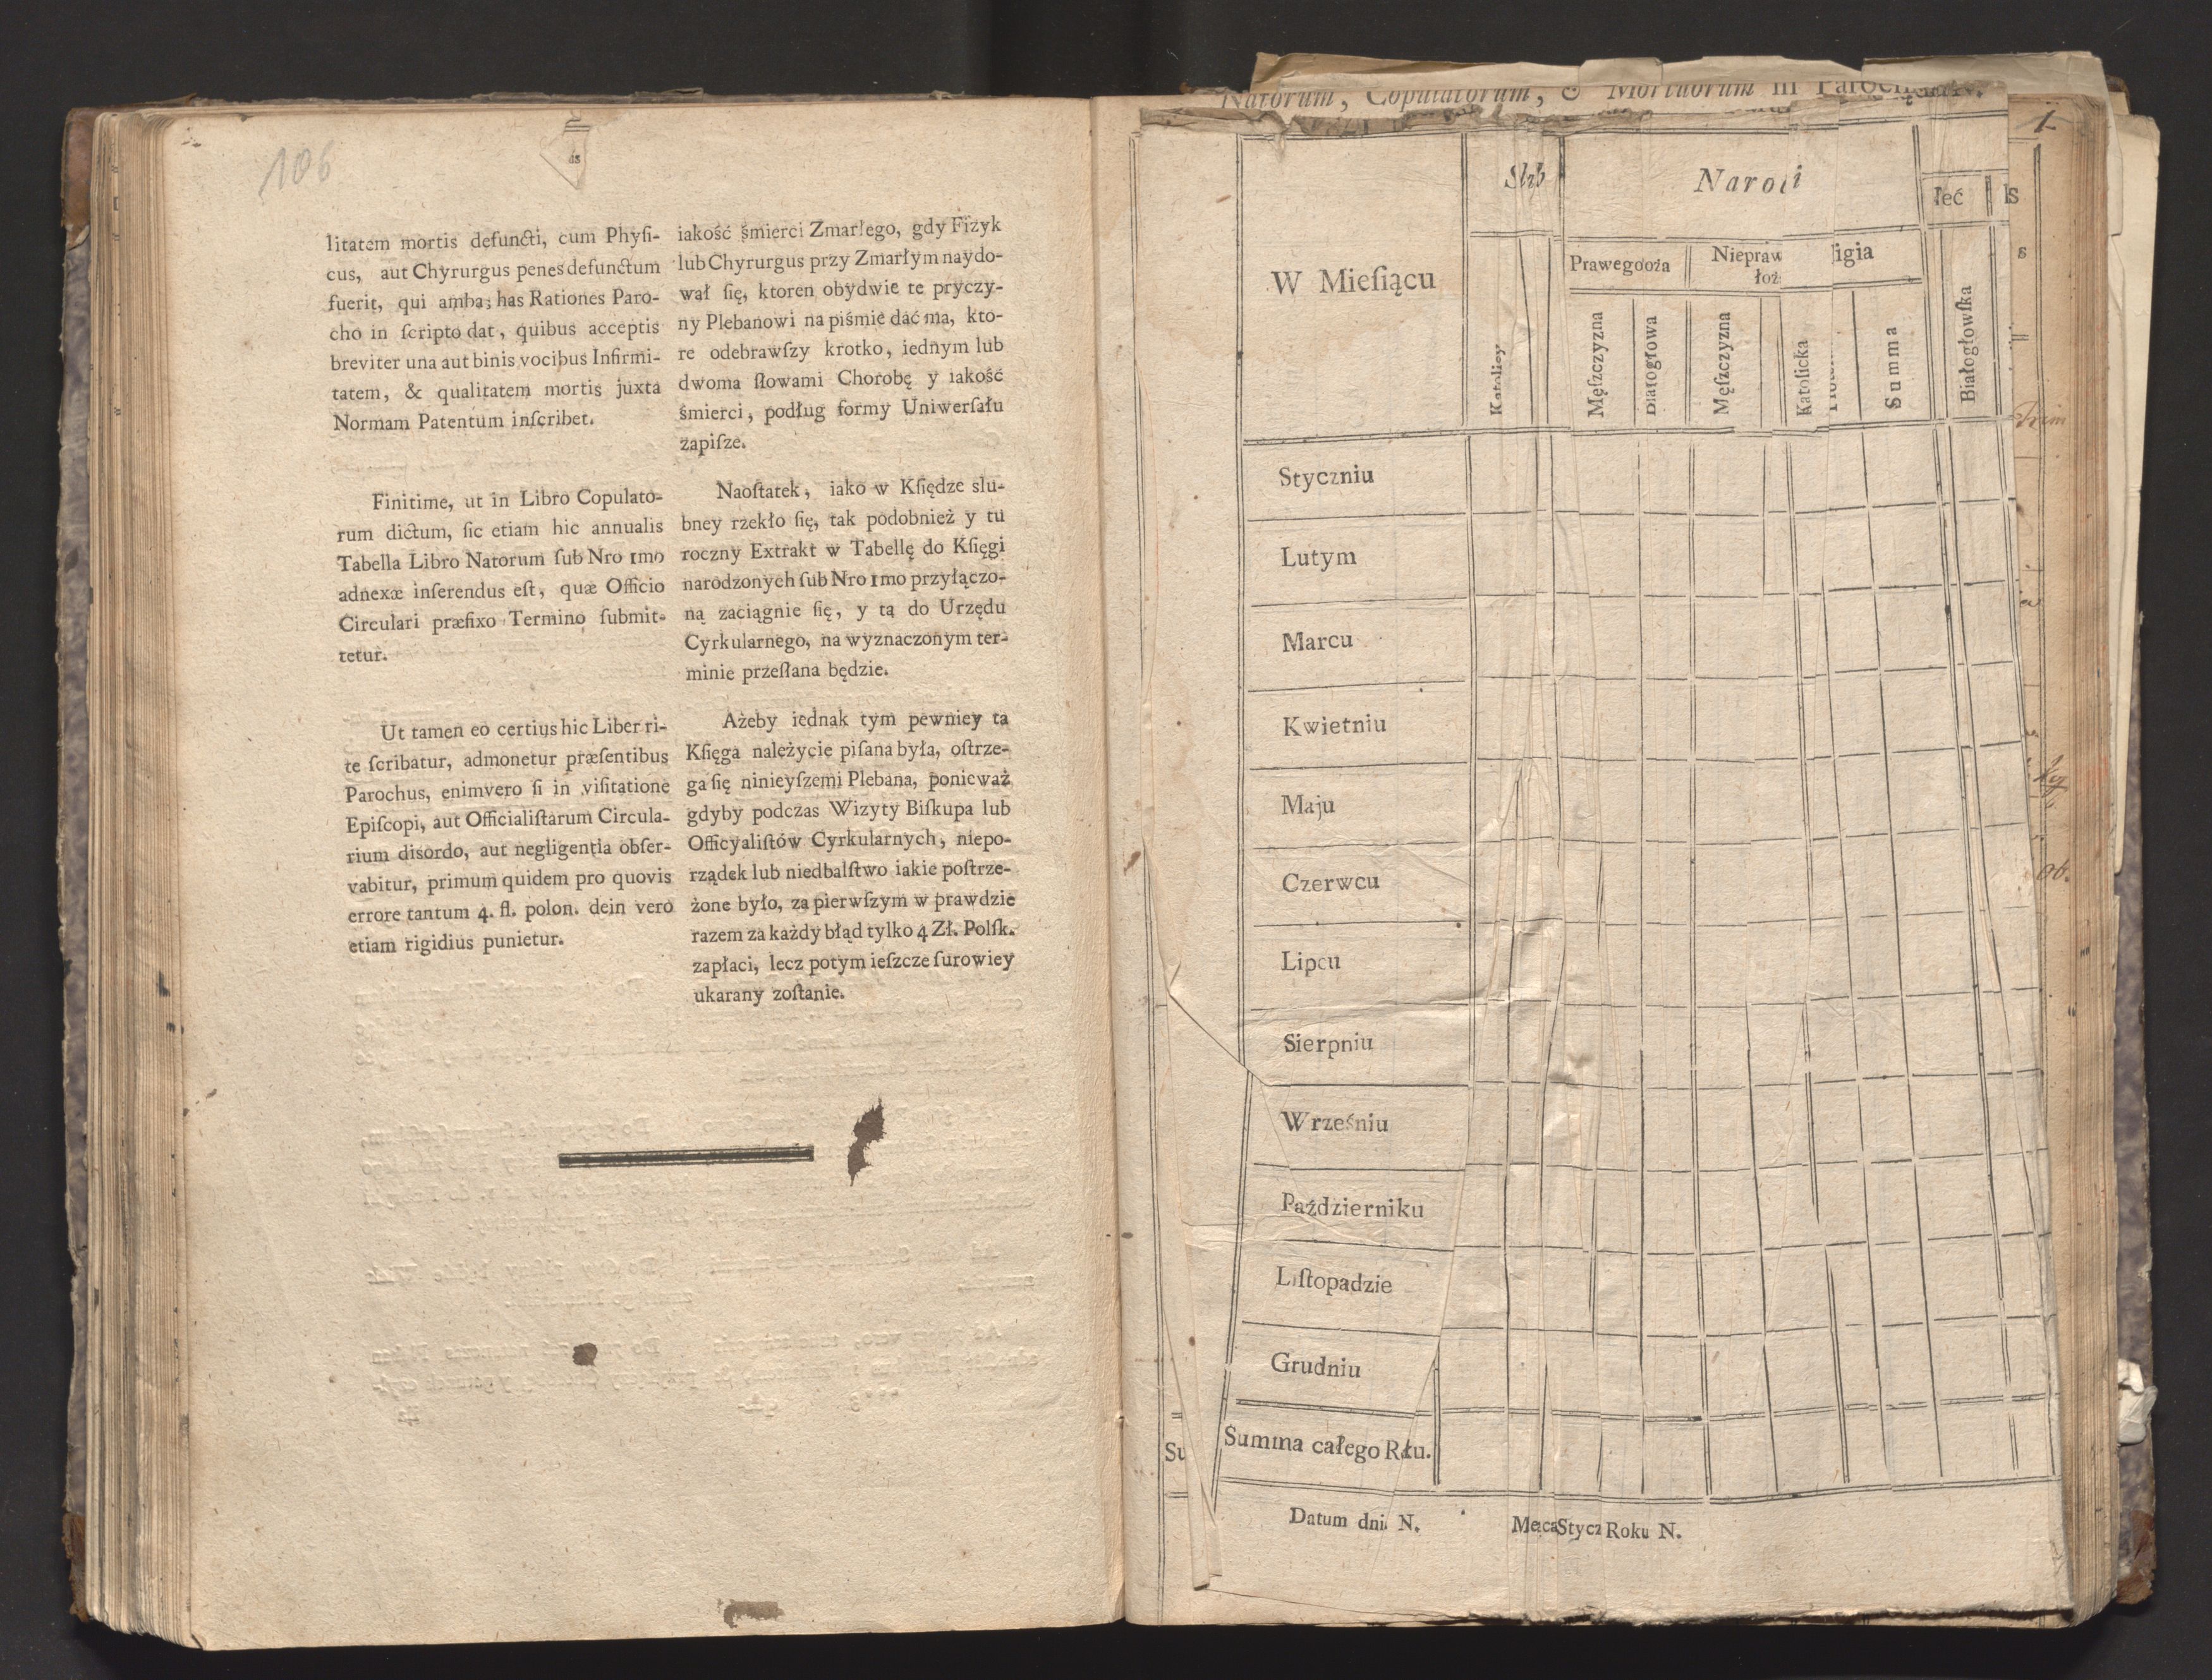 106
litatem mortis defuncti, cum Phyſi-
cus, aut Chyrurgus penes defunctum
fuerit, qui ambas has Rationes Paro-
cho in ſcripto dat, quibus acceptis
breviter una aut binis vocibus Infirmi-
tatem, & qualitatem mortis juxta
Normam Patentum inſcribet.
Finitime, ut in Libro Copulato-
rum dictum, ſic etiam hic annualis
Tabella Libro Natorum ſub Nro 1mo
adnexæ inſerendus eſt, quæ Officio
Circulari præfixo Termino ſubmit-
tetur.
Ut tamen eo certius hic Liber ri-
te ſcribatur, admonetur præſentibus
Parochus, enimvero ſi in viſitatione
Epiſcopi, aut Officialiſtarum Circula-
rium disordo, aut negligentia obſer-
vabitur, primum quidem pro quovis
errore tantum 4. fl. polon. dein vero
etiam rigidius punietur.
iakość śmierci Zmarłego, gdy Fizyk
lub Chyrurgus przy Zmarłym naydo-
wał ſię, ktoren obydwie te pryczy-
ny Plebanowi na piśmie dać ma, kto-
re odebrawſzy krotko, iednym lub
dwoma ſłowami Chorobę y iakość
śmierci, podług formy Uniwerſału
zapiſze.
Naoſtatek, iako w Kſiędze slu-
bney rzekło ſię, tak podobnież y tu
roczny Extrakt w Tabellę do Kſięgi
narodzonych ſub Nro 1mo przyłączo-
ną zaciągnie ſię, y tą do Urzędu
Cyrkularnego, na wyznaczonym ter-
minie przeſłana będzie.
Ażeby iednak tym pewniey ta
Kſięga należycie piſana była, oſtrze-
ga ſię ninieyſzemi Plebana, ponieważ
gdyby podczas Wizyty Biſkupa lub
Officyaliſtów Cyrkularnych, niepo-
rządek lub niedbalſtwo iakie poſtrze-
żone było, za pierwſzym w prawdzie
razem za każdy błąd tylko 4 Zł. Polſk.
zapłaci, lecz potym ieſzcze ſurowiey
ukarany zoſtanie.
Natorum, Copulatorum, & Mortuorum in
W Mieſiącu
Naro
leć
Prawego
Niepraw
łoż
igia
Katolicy
Męſzczyzna
Białogłowa
Męſzczyzna
Katolicka
Summa
Białogłowſka
Styczniu
Lutym
Marcu
Kwietniu
Maju
Czerwcu
Lipcu
Sierpniu
Wrześniu
Październiku
Liſtopadzie
Grudniu
Su
Summa całego
Datum dni N.
Stycz Roku N.